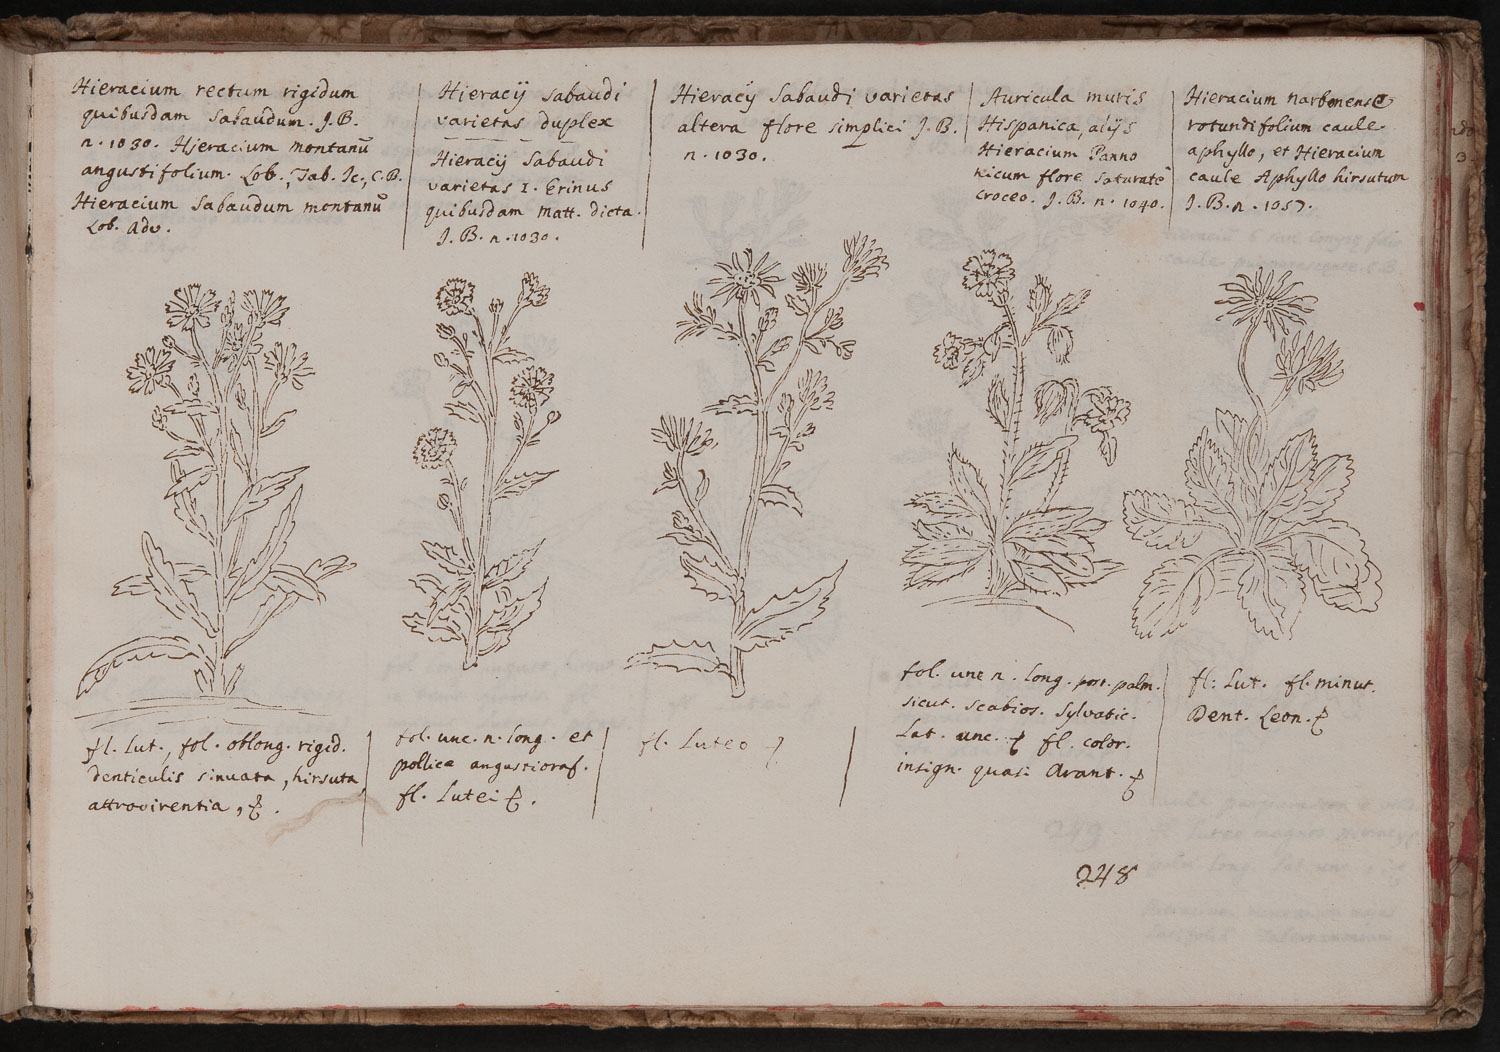 Hieracium rectum rigidum
quibusdam Sabaudum. J.B.
n. 1030. Hjeracium montanū
angustifolium. Lob., Tab. Ic., C.B.
Hieracium Sabaudum montanū
Lob. Adv.
Hieracij Sabaudi
varietas duplex
Hieracij Sabaudi
varietas 1. Erinus
quibusdam Matt. dicta.
J.B. n. 1030.
Hieracij Sabaudi varietas
altera flore simplici J.B.
n. 1030.
Auricula muris
Hispanica, alijs
Hieracium Panno
nicum flore saturatè
croceo. J.B. n. 1040.
Hieracium narbonense
rotundifolium caule
aphyllo, et Hieracium
caule Aphyllo hirsutum
J.B. n. 1057.
fl. Lut., fol. oblong. rigid.
denticulis sinuata, hirsuta,
attrovirentia,
fol. unc. n. long. et
pollice angustioraf.
fl. Lutei
fl. Luteo
fol. unc n. long. palm.
sicut. scabios. sylvatic.
Lat. unc. fl. color.
insign. quasi Arant.
fl: Lut. fl. minut.
Dent. Leon.
248